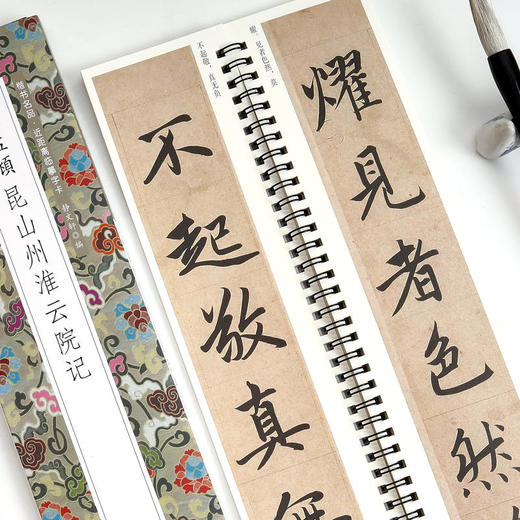 楷书名品·近距离临摹字卡
静文轩◎编
頫 昆山州淮云院记
耀，见者色然，莫
不起敬，真无负
耀见者色然
不起敬真無